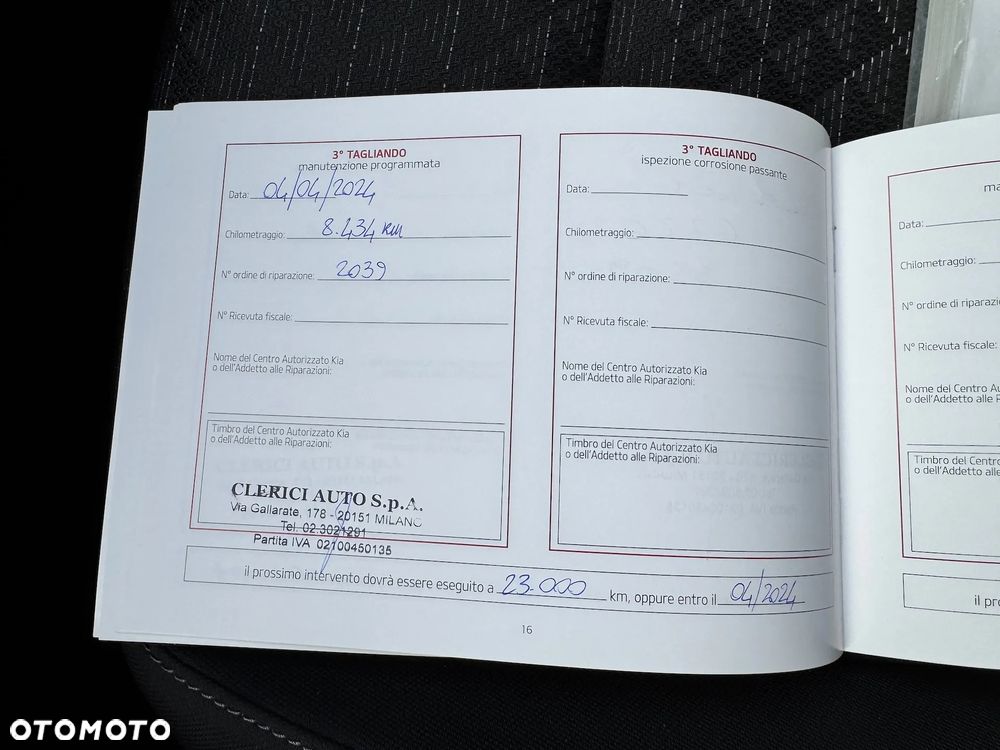 3° TAGLIANDO
manutenzione programmata
Data: 04/04/2024
Chilometraggio: 8.434 km
N° ordine di riparazione: 2039
N° Ricevuta fiscale:
Nome del Centro Autorizzato Kia
o dell'Addetto alle Riparazioni:
Timbro del Centro Autorizzato Kia
o dell'Addetto alle Riparazioni:
CLERICI AUTO S.p.A.
Via Gallarate, 178 - 20151 MILANO
Tel. 02.3021291
Partita IVA 02100450135
3° TAGLIANDO
ispezione corrosione passante
Data:
Chilometraggio:
N° ordine di riparazione:
N° Ricevuta fiscale:
Nome del Centro Autorizzato Kia
o dell'Addetto alle Riparazioni:
Timbro del Centro Autorizzato Kia
o dell'Addetto alle Riparazioni:
il prossimo intervento dovrà essere eseguito a 23.000 km, oppure entro il 04/2024
16
ma
Data:
Chilometraggio:
N° ordine di riparazio
N° Ricevuta fiscale:
Nome del Centro Au
o dell'Addetto alle R
Timbro del Centro
o dell'Addetto alle
il pro
OTOMOTO